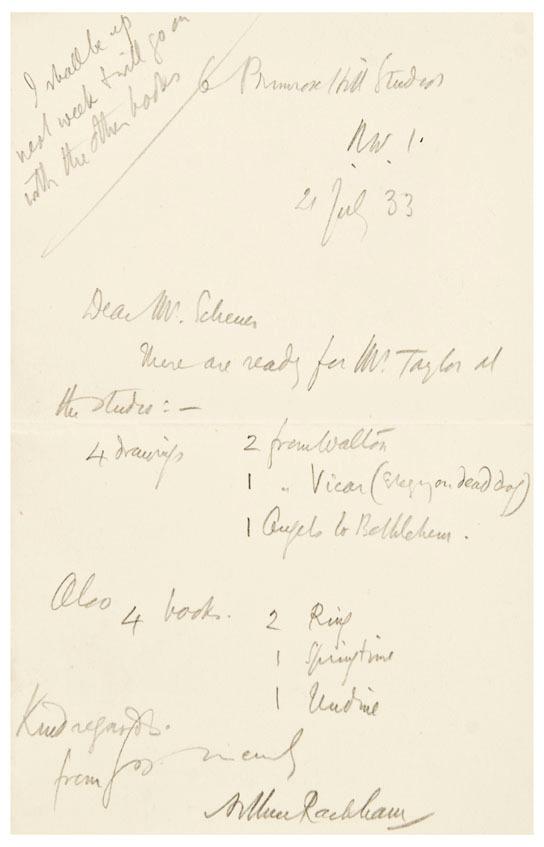 I shall be up
next week & will go on
with the other books
6 Primrose Hill Studios
NW 1.
21 July 33
Dear Mr. Scheuer
There are ready for Mr Taylor at
the studio: —
4 drawings 2 from Walton
1 " Vicar (Elegy on dead dog)
1 Angels to Bethlehem.
Also 4 books. 2 Ring
1 Springtime
1 Undine
Kind regards.
from
Arthur Rackham